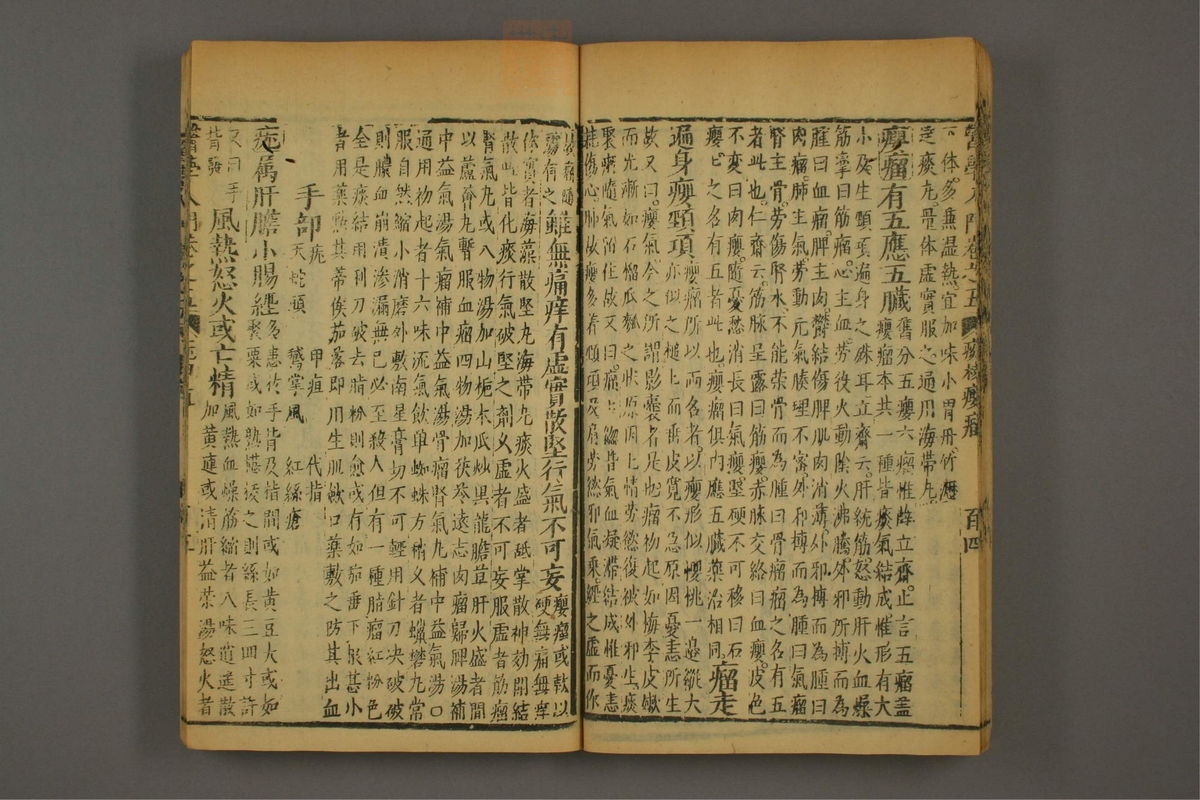 醫學入門卷之五 瘿瘤 百四
下體多兼濕熱宜加味小胃丹竹瀝
逹痰丸骨体虛實服之通用海帶丸
癭瘤有五應五臟癭瘤本共一種皆痰氣結成惟形有大
小及生頸項遍身之殊耳立齋云肝統筋怒動肝火血燥
筋攣曰筋瘤心主血勞役火動陰火沸騰外邪所搏而為
腫曰血瘤脾主肉鬱結傷脾肌肉消薄外邪搏而為腫曰
肉瘤肺主氣勞動元氣腠理不密外邪搏而為腫曰氣瘤
腎主骨勞傷腎水不能榮骨而為腫曰骨瘤瘤之名有五
者此也仁齋云筋脉呈露曰筋癭赤脉交絡曰血癭皮色
不変曰肉癭隨憂愁消長曰氣癭堅硬不可移曰石
癭癭之名有五者此也癭瘤俱內應五臟藥治相同瘤走
遍身癭頸項癭瘤所以兩名者以癭形似櫻桃一邊縱大
亦似之槌上而垂皮寬不急原因憂恚所生
故又曰癭氣今之所謂影囊者是也瘤初起如梅李皮嫰
而光漸如石榴瓜瓠之狀原因七情勞慾復被外邪生痰
聚瘀隨氣留住故又曰瘤
耗傷心肺故癭多着頸項及肩勞慾邪氣乘經之虛而作
雖無痛痒有虛實散堅行氣不可妄癭瘤或軟或
硬無痛無痒
體實者海藻散堅丸海帶丸痰火盛者舐掌散神効開結
散此皆化痰行氣破堅之劑久虛者不可妄服虛者筋瘤
腎氣丸或八物湯加山梔木瓜炒黑龍膽草肝火盛者間
以蘆薈丸暫服血瘤四物湯加茯苓遠志肉瘤歸脾湯補
中益氣湯氣瘤補中益氣湯骨瘤腎氣丸補中益氣湯
通用初起者十六味流氣飲單蜘蛛方稍久者蠟礬丸常
服自然縮小消磨外敷南星膏切不可輕用針刀决破破
則膿血崩潰滲漏無已必至殺人但有一種脂瘤紅粉色
全是痰結用利刀破去脂粉則愈或有如茄垂下根甚小
者用藥點其蒂俟茄落即用生肌歛口藥敷之防其出血
手部 疣 天蛇頭 鵞掌風 甲疽 紅絲瘡 代指
疣屬肝膽小腸經多患於手背及指間或如黃豆大或如
聚粟或如熱蓓拔之則絲長三四寸許
又曰手
皆發風熱怒火或亡精風熱血燥筋縮者八味逍遙散
加黃連或清肝益榮湯怒火者